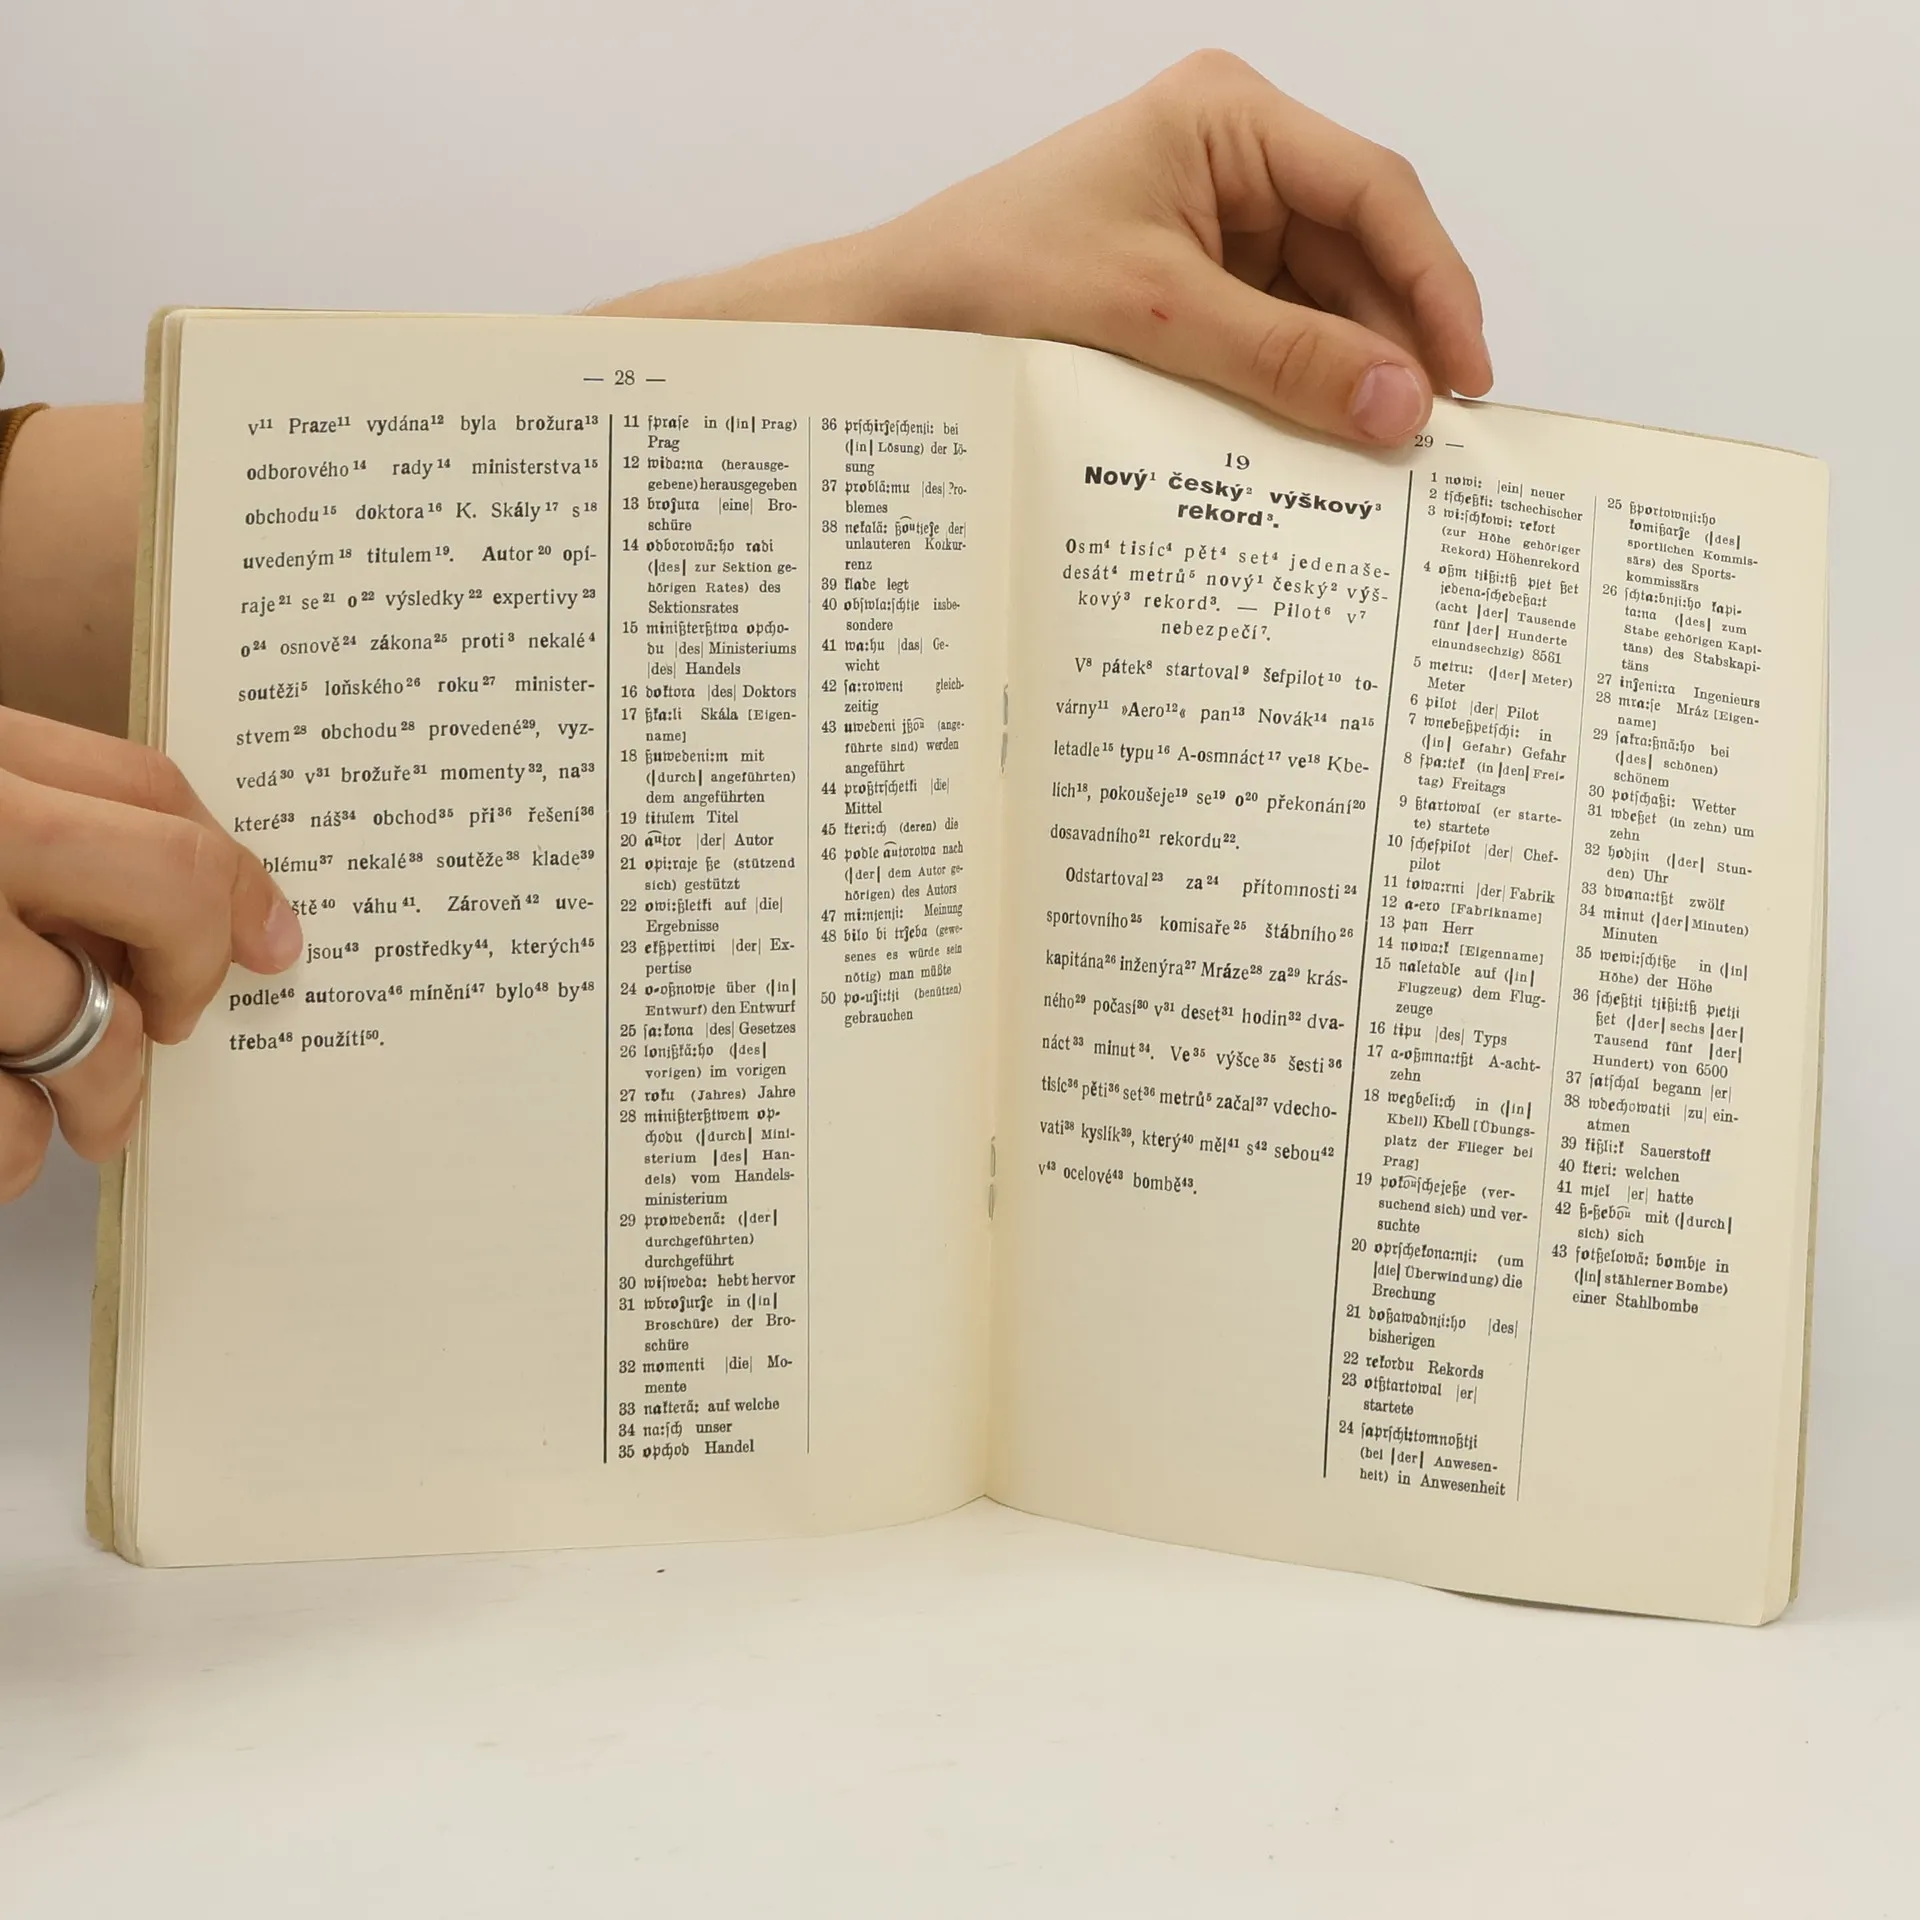 — 28 —
v¹¹ Praze¹¹ vydána¹² byla brožura¹³
odborového¹⁴ rady¹⁴ ministerstva¹⁵
obchodu¹⁵ doktora¹⁶ K. Skály¹⁷ s¹⁸
uvedeným¹⁸ titulem¹⁹. Autor²⁰ opí-
raje²¹ se²¹ o²² výsledky²² expertivy²³
o²⁴ osnově²⁴ zákona²⁵ proti³ nekalé⁴
soutěži⁵ loňského²⁶ roku²⁷ minister-
stvem²⁸ obchodu²⁸ provedené²⁹, vyz-
vedá³⁰ v³¹ brožuře³¹ momenty³², na³³
které³³ náš³⁴ obchod³⁵ při³⁶ řešení³⁶
blému³⁷ nekalé³⁸ soutěže³⁸ klade³⁹
ště⁴⁰ váhu⁴¹. Zároveň⁴² uve-
jsou⁴³ prostředky⁴⁴, kterých⁴⁵
podle⁴⁶ autorova⁴⁶ mínění⁴⁷ bylo⁴⁸ by⁴⁸
třeba⁴⁸ použítí⁵⁰.
11 fpraſe in (|in| Prag)
Prag
12 wida:na (herausge-
gebene) herausgegeben
13 broĵura |eine| Bro-
schüre
14 odborowā:ho radi
(|des| zur Sektion ge-
hörigen Rates) des
Sektionsrates
15 minißterßtwa opcho-
du |des| Ministeriums
|des| Handels
16 doktora |des| Doktors
17 ßka:li Skála [Eigen-
name]
18 ßuwedeni:m mit
(|durch| angeführten)
dem angeführten
19 titulem Titel
20 au͡tor |der| Autor
21 opi:raje ße (stützend
sich) gestützt
22 owi:ßletki auf |die|
Ergebnisse
23 ekßpertiwi |der| Ex-
pertise
24 o-oßnowje über (|in|
Entwurf) den Entwurf
25 ſa:kona |des| Gesetzes
26 lonjßkā:ho (|des|
vorigen) im vorigen
27 roku (Jahres) Jahre
28 minißterßtwem op-
chodu (|durch| Mini-
sterium |des| Han-
dels) vom Handels-
ministerium
29 prowedenā: (|der|
durchgeführten)
durchgeführt
30 wiſweda: hebt hervor
31 wbroĵurĵe in (|in|
Broschüre) der Bro-
schüre
32 momenti |die| Mo-
mente
33 nakterā: auf welche
34 na:ſch unser
35 opchod Handel
36 prſchirĵeſchenji: bei
(|in| Lösung) der Lö-
sung
37 problā:mu |des| Pro-
blemes
38 nekalā: ßou͡tjeĵe |der|
unlauteren Konkur-
renz
39 klade legt
40 obſwla:ſchtje insbe-
sondere
41 wa:hu |das| Ge-
wicht
42 ſa:rowenj gleich-
zeitig
43 uwedeni jßou͡ (ange-
führte sind) werden
angeführt
44 proßtrſchetki |die|
Mittel
45 kteri:ch (deren) die
46 podle au͡torowa nach
(|der| dem Autor ge-
hörigen) des Autors
47 mi:njenji: Meinung
48 bilo bi trĵeba (gewe-
senes es würde sein
nötig) man müßte
50 po-uĵi:tji (benützen)
gebrauchen
29 —
19
Nový¹ český² výškový³
rekord³.
Osm⁴ tisíc⁴ pět⁴ set⁴ jedenaše-
desát⁴ metrů⁵ nový¹ český² výš-
kový³ rekord³. — Pilot⁶ v⁷
nebezpečí⁷.
V⁸ pátek⁸ startoval⁹ šefpilot¹⁰ to-
várny¹¹ »Aero¹²« pan¹³ Novák¹⁴ na¹⁵
letadle¹⁵ typu¹⁶ A-osmnáct¹⁷ ve¹⁸ Kbe-
lích¹⁸, pokoušeje¹⁹ se¹⁹ o²⁰ překonání²⁰
dosavadního²¹ rekordu²².
Odstartoval²³ za²⁴ přítomnosti²⁴
sportovního²⁵ komisaře²⁵ štábního²⁶
kapitána²⁶ inženýra²⁷ Mráze²⁸ za²⁹ krás-
ného²⁹ počasí³⁰ v³¹ deset³¹ hodin³² dva-
náct³³ minut³⁴. Ve³⁵ výšce³⁵ šesti³⁶
tisíc³⁶ pěti³⁶ set³⁶ metrů⁵ začal³⁷ vdecho-
vati³⁸ kyslík³⁹, který⁴⁰ měl⁴¹ s⁴² sebou⁴²
v⁴³ ocelové⁴³ bombě⁴³.
1 nowi: |ein| neuer
2 tſcheßki: tschechischer
3 wi:ſchkowi: rekort
(zur Höhe gehöriger
Rekord) Höhenrekord
4 oßm tjißi:tß pjet ßet
jedena-ſchedeßa:t
(acht |der| Tausende
fünf |der| Hunderte
einundsechzig) 8561
5 metru: (|der| Meter)
Meter
6 pilot |der| Pilot
7 wnebeßpetſchi: in
(|in| Gefahr) Gefahr
8 fpa:tek (in |den| Frei-
tag) Freitags
9 ßtartowal (er starte-
te) startete
10 ſchefpilot |der| Chef-
pilot
11 towa:rni |der| Fabrik
12 a-ero [Fabrikname]
13 pan Herr
14 nowa:k [Eigenname]
15 naletadle auf (|in|
Flugzeug) dem Flug-
zeuge
16 tipu |des| Typs
17 a-oßmna:tßt A-acht-
zehn
18 wegbeli:ch in (|in|
Kbell) Kbell [Übungs-
platz der Flieger bei
Prag]
19 pokou͡ſchejeße (ver-
suchend sich) und ver-
suchte
20 oprſchekona:nji: (um
|die| Überwindung) die
Brechung
21 doßawadnji:ho |des|
bisherigen
22 rekordu Rekords
23 otßtartowal |er|
startete
24 ſaprſchi:tomnoßtji
(bei |der| Anwesen-
heit) in Anwesenheit
25 ßportownji:ho
komißarĵe (|des|
sportlichen Kommis-
särs) des Sports-
kommissärs
26 ſchta:bnji:ho kapi-
ta:na (|des| zum
Stabe gehörigen Kapi-
täns) des Stabskapi-
täns
27 inĵeni:ra Ingenieurs
28 mra:ſe Mráz [Eigen-
name]
29 ſakra:ßnā:ho bei
(|des| schönen)
schönem
30 potſchaßi: Wetter
31 wdeßet (in zehn) um
zehn
32 hodjin (|der| Stun-
den) Uhr
33 dwana:tßt zwölf
34 minut (|der| Minuten)
Minuten
35 wewi:ſchtße in (|in|
Höhe) der Höhe
36 ſcheßtji tjißi:tß pjetji
ßet (|der| sechs |der|
Tausend fünf |der|
Hundert) von 6500
37 ſatſchal begann |er|
38 wdechowatji |zu| ein-
atmen
39 kißli:k Sauerstoff
40 kteri: welchen
41 mjel |er| hatte
42 ß-ßebou͡ mit (|durch|
sich) sich
43 fotßelowā: bombje in
(|in| stählerner Bombe)
einer Stahlbombe